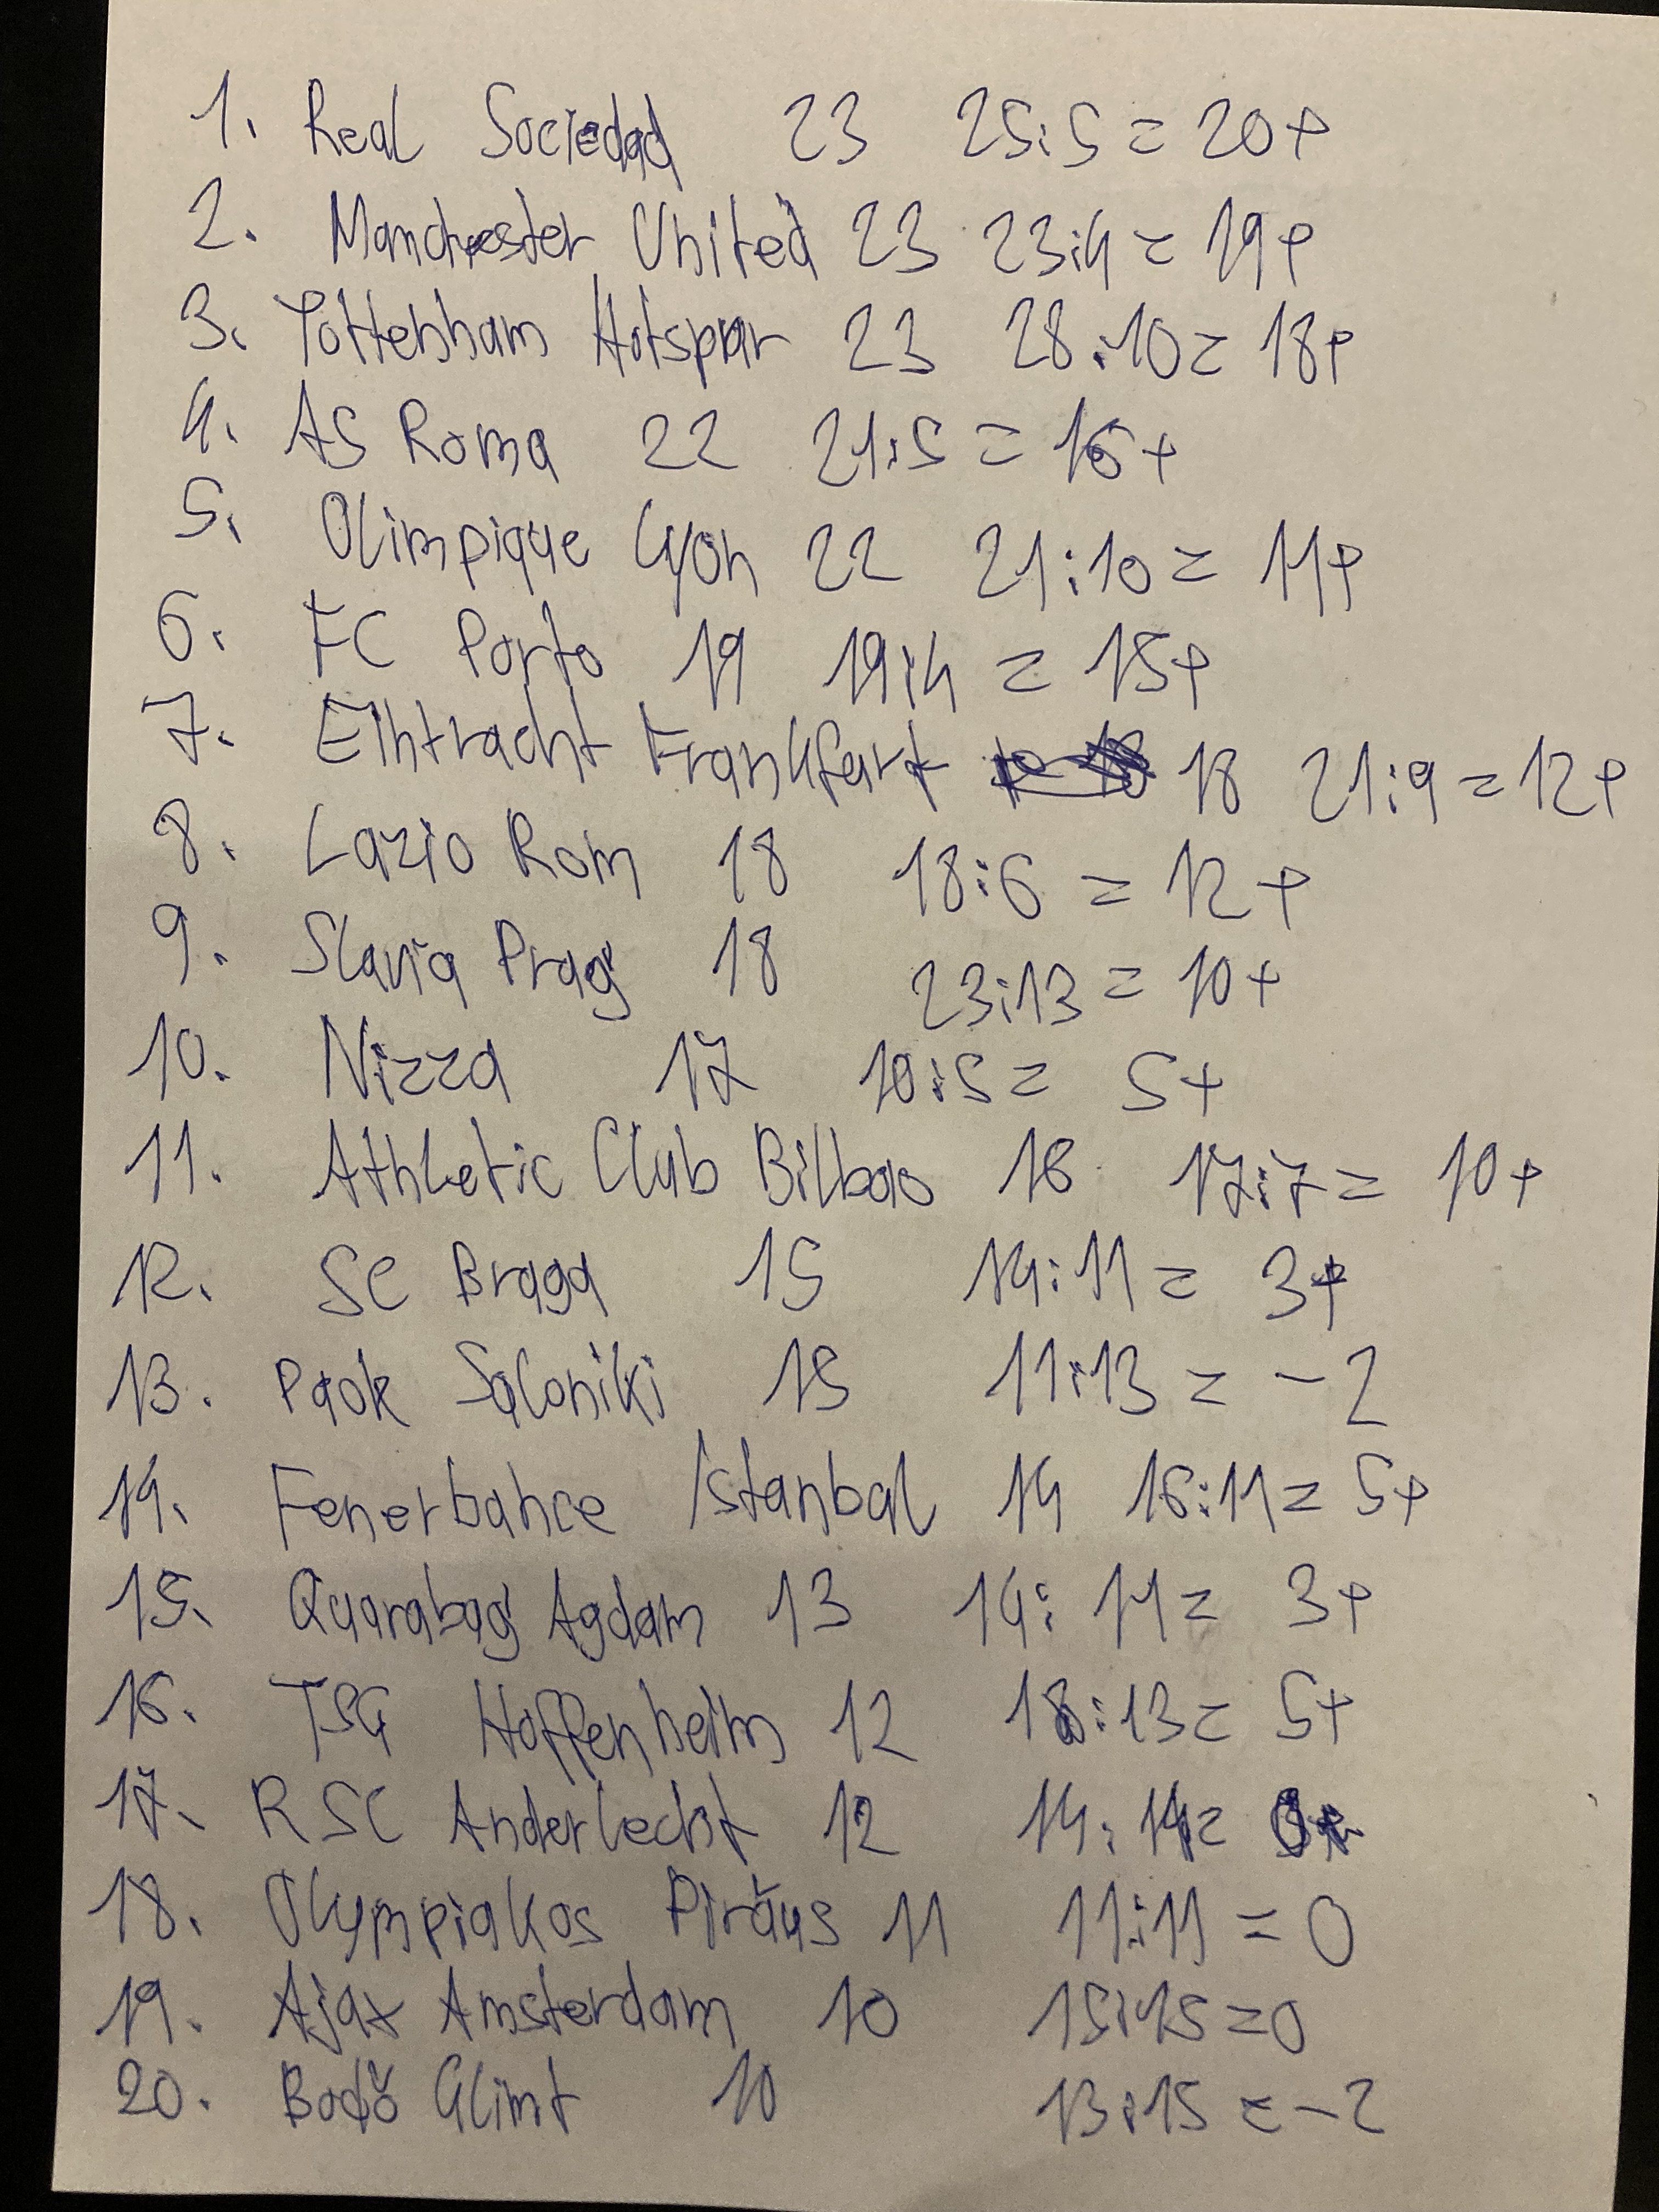 1. Real Sociedad 23 25:5 = 20+
2. Manchester United 23 23:4 = 19+
3. Tottenham Hotspur 23 28:10 = 18+
4. AS Roma 22 21:5 = 16+
5. Olimpique Lyon 22 21:10 = 11+
6. FC Porto 19 19:4 = 15+
7. Eintracht Frankfurt 18 21:9 = 12+
8. Lazio Rom 18 18:6 = 12+
9. Slavia Prag 18 23:13 = 10+
10. Nizza 17 10:5 = 5+
11. Athletic Club Bilbao 16 17:7 = 10+
12. SC Braga 15 14:11 = 3+
13. Paok Saloniki 15 11:13 = -2
14. Fenerbahce Istanbul 14 16:11 = 5+
15. Quarabag Agdam 13 14:11 = 3+
16. TSG Hoffenheim 12 18:13 = 5+
17. RSC Anderlecht 12 14:14 = 0
18. Olympiakos Piräus 11 11:11 = 0
19. Ajax Amsterdam 10 15:15 = 0
20. Bodö Glimt 10 13:15 = -2